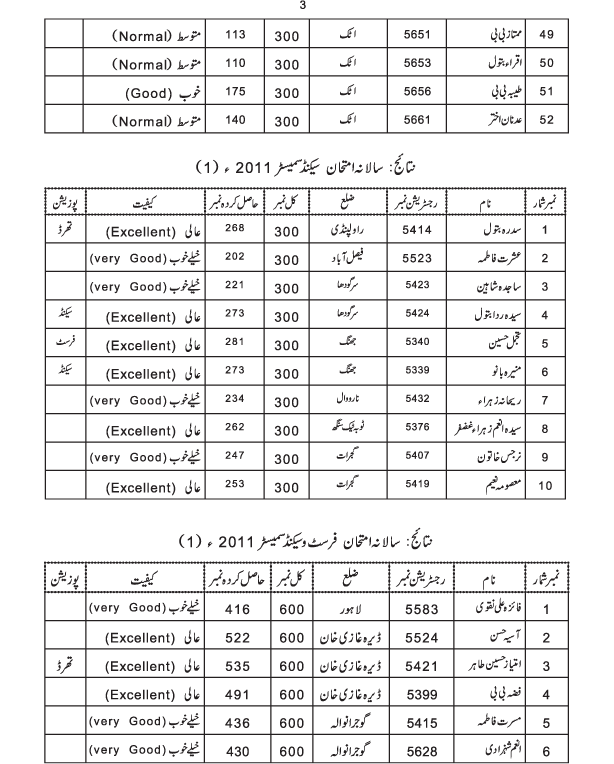 3
49 ممتاز بی بی 5651 اٹک 300 113 متوسط (Normal)
50 اقراء بتول 5653 اٹک 300 110 متوسط (Normal)
51 طیبہ بی بی 5656 اٹک 300 175 خوب (Good)
52 عدنان اختر 5661 اٹک 300 140 متوسط (Normal)
نتائج: سالانہ امتحان سیکنڈ سمیسٹر 2011 ء (1)
نمبر شمار نام رجسٹریشن نمبر ضلع کل نمبر حاصل کردہ نمبر کیفیت پوزیشن
1 سدرہ بتول 5414 راولپنڈی 300 268 عالی (Excellent) تھرڈ
2 عشرت فاطمہ 5523 فیصل آباد 300 202 خیلے خوب (very Good)
3 ساجدہ شاہین 5423 سرگودھا 300 221 خیلے خوب (very Good)
4 سیدہ ردا بتول 5424 سرگودھا 300 273 عالی (Excellent) سیکنڈ
5 تجمل حسین 5340 جھنگ 300 281 عالی (Excellent) فرسٹ
6 منیرہ بانو 5339 جھنگ 300 273 عالی (Excellent) سیکنڈ
7 ریحانہ زہراء 5432 نارووال 300 234 خیلے خوب (very Good)
8 سیدہ انعم زہراء غضنفر 5376 ٹوبہ ٹیک سنگھ 300 262 عالی (Excellent)
9 نرجس خاتون 5407 گجرات 300 247 خیلے خوب (very Good)
10 معصومہ نعیم 5419 گجرات 300 253 عالی (Excellent)
نتائج: سالانہ امتحان فرسٹ و سیکنڈ سمیسٹر 2011 ء (1)
نمبر شمار نام رجسٹریشن نمبر ضلع کل نمبر حاصل کردہ نمبر کیفیت پوزیشن
1 فائزہ علی نقوی 5583 لاہور 600 416 خیلے خوب (very Good)
2 آسیہ حسن 5524 ڈیرہ غازی خان 600 522 عالی (Excellent)
3 امتیاز حسین طاہر 5421 ڈیرہ غازی خان 600 535 عالی (Excellent) تھرڈ
4 فضہ بی بی 5399 ڈیرہ غازی خان 600 491 عالی (Excellent)
5 مسرت فاطمہ 5415 گوجرانوالہ 600 436 خیلے خوب (very Good)
6 انعم شہزادی 5628 گوجرانوالہ 600 430 خیلے خوب (very Good)